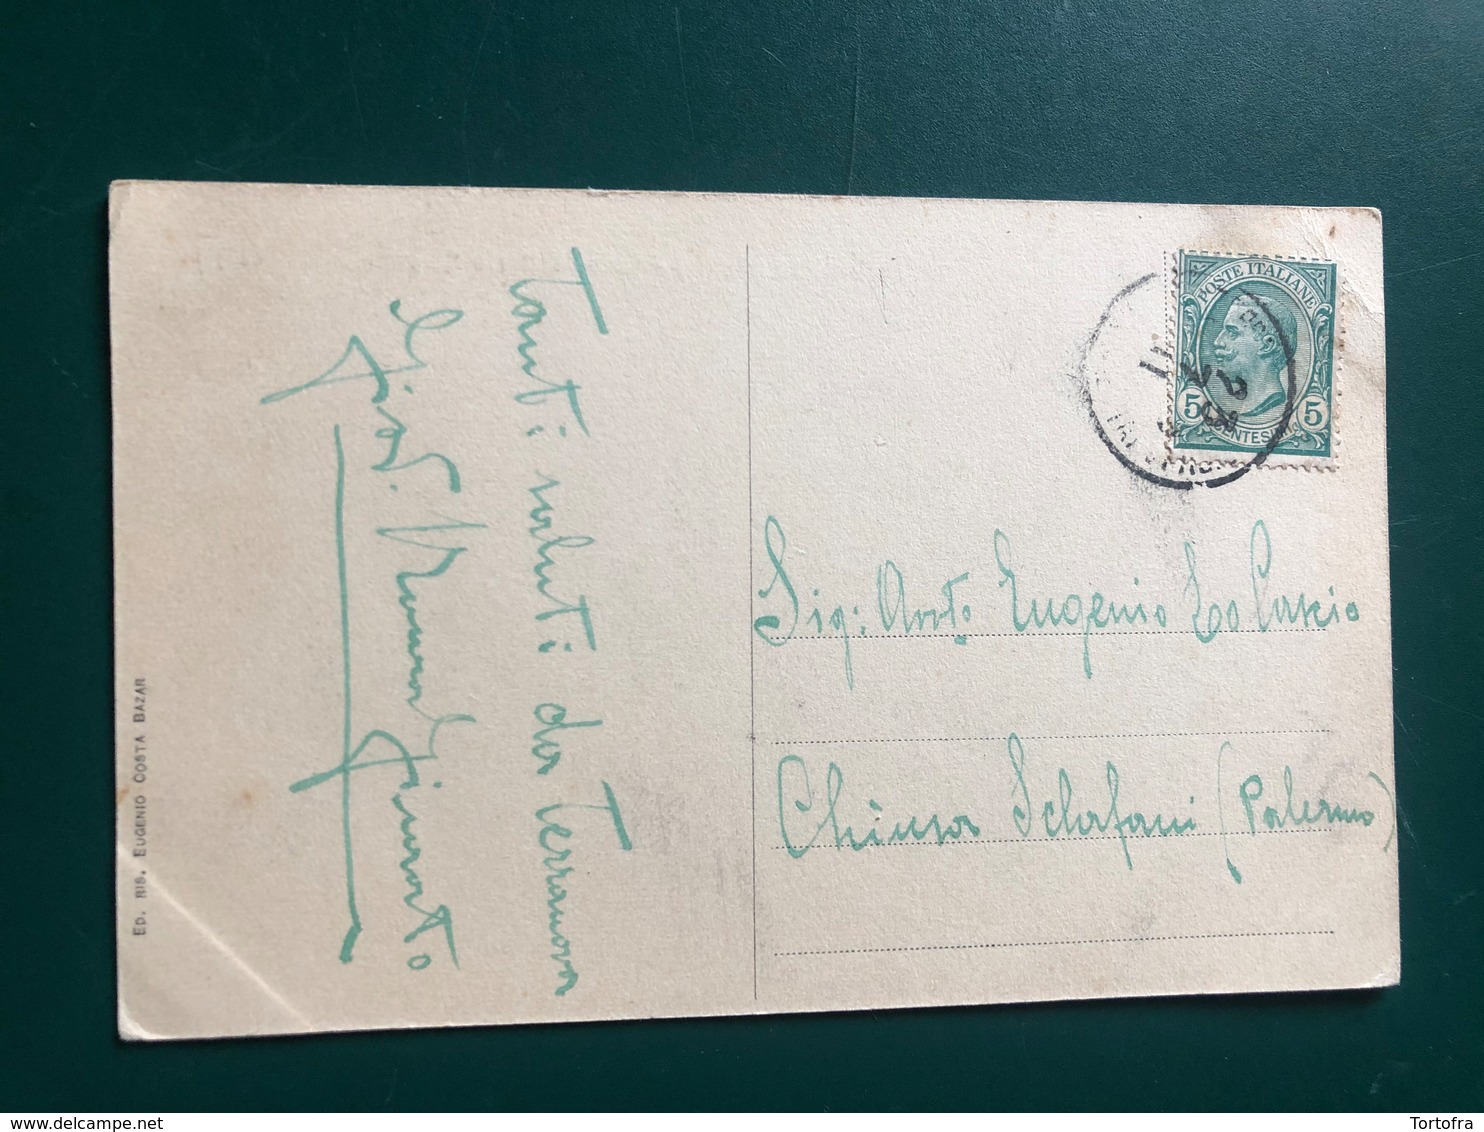 Tanti saluti da Terranova
ED. RIS. EUGENIO COSTA BAZAR
POSTE ITALIANE
5 CENTESIMI 5
Sig: Avvto Eugenio Lo Cascio
Chiusa Sclafani (Palermo)
Tortofra